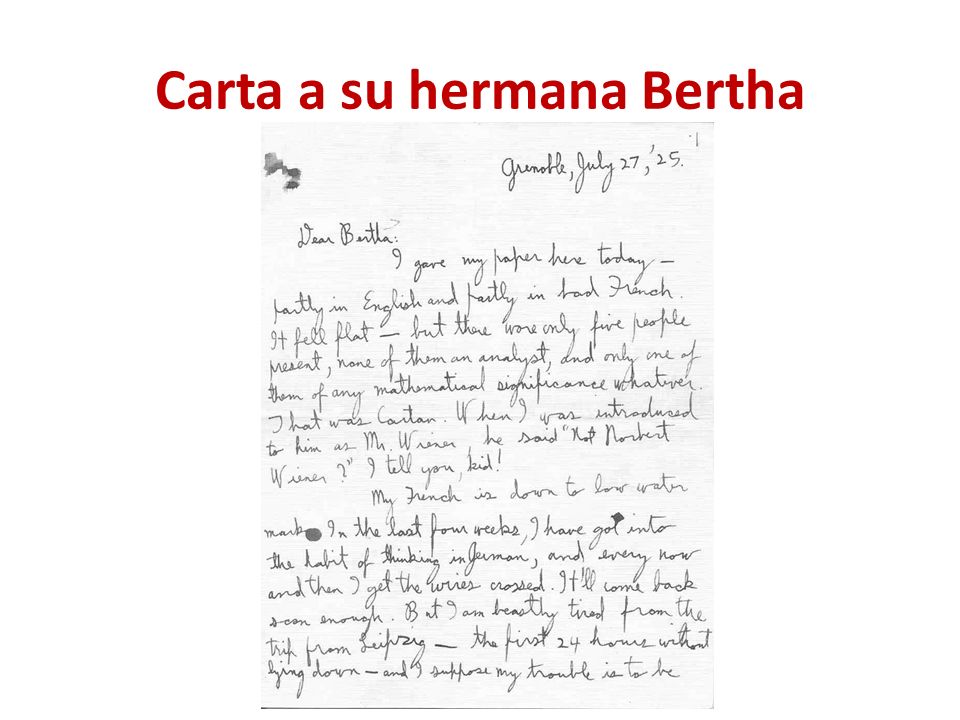 Carta a su hermana Bertha
1
Grenoble, July 27, '25.
Dear Bertha:
I gave my paper here today —
partly in English and partly in bad French.
It fell flat — but there were only five people
present, none of them an analyst, and only one of
them of any mathematical significance whatever.
That was Cartan. When I was introduced
to him as Mr. Wiener, he said "Not Norbert
Wiener?" I tell you, kid!
My French is down to low water
mark. In the last four weeks, I have got into
the habit of thinking in German, and every now
and then I get the wires crossed. It'll come back
soon enough. But I am beastly tired from the
trip from Leipzig — the first 24 hours without
lying down — and I suppose my trouble is to be